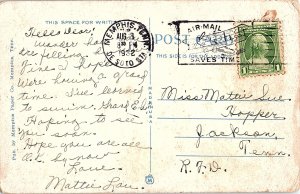 THIS SPACE FOR WRITING
MEMPHIS, TENN.
AUG 3
PM
1932
DE SOTO STA.
AIR MAIL
SAVES TIME
POST CARD
Hello Dear!
Wonder how
you are feeling
fine I hope
We're having a grand
time. I've learned
to swim.
Hoping to see
you soon.
Hope you are all
O.K. by now
Love
Mattie Lou.
Miss Mattie Sue
Hopper
Jackson,
Tenn.
R.F.D.
Pub. by Memphis Paper Co., Memphis, Tenn.